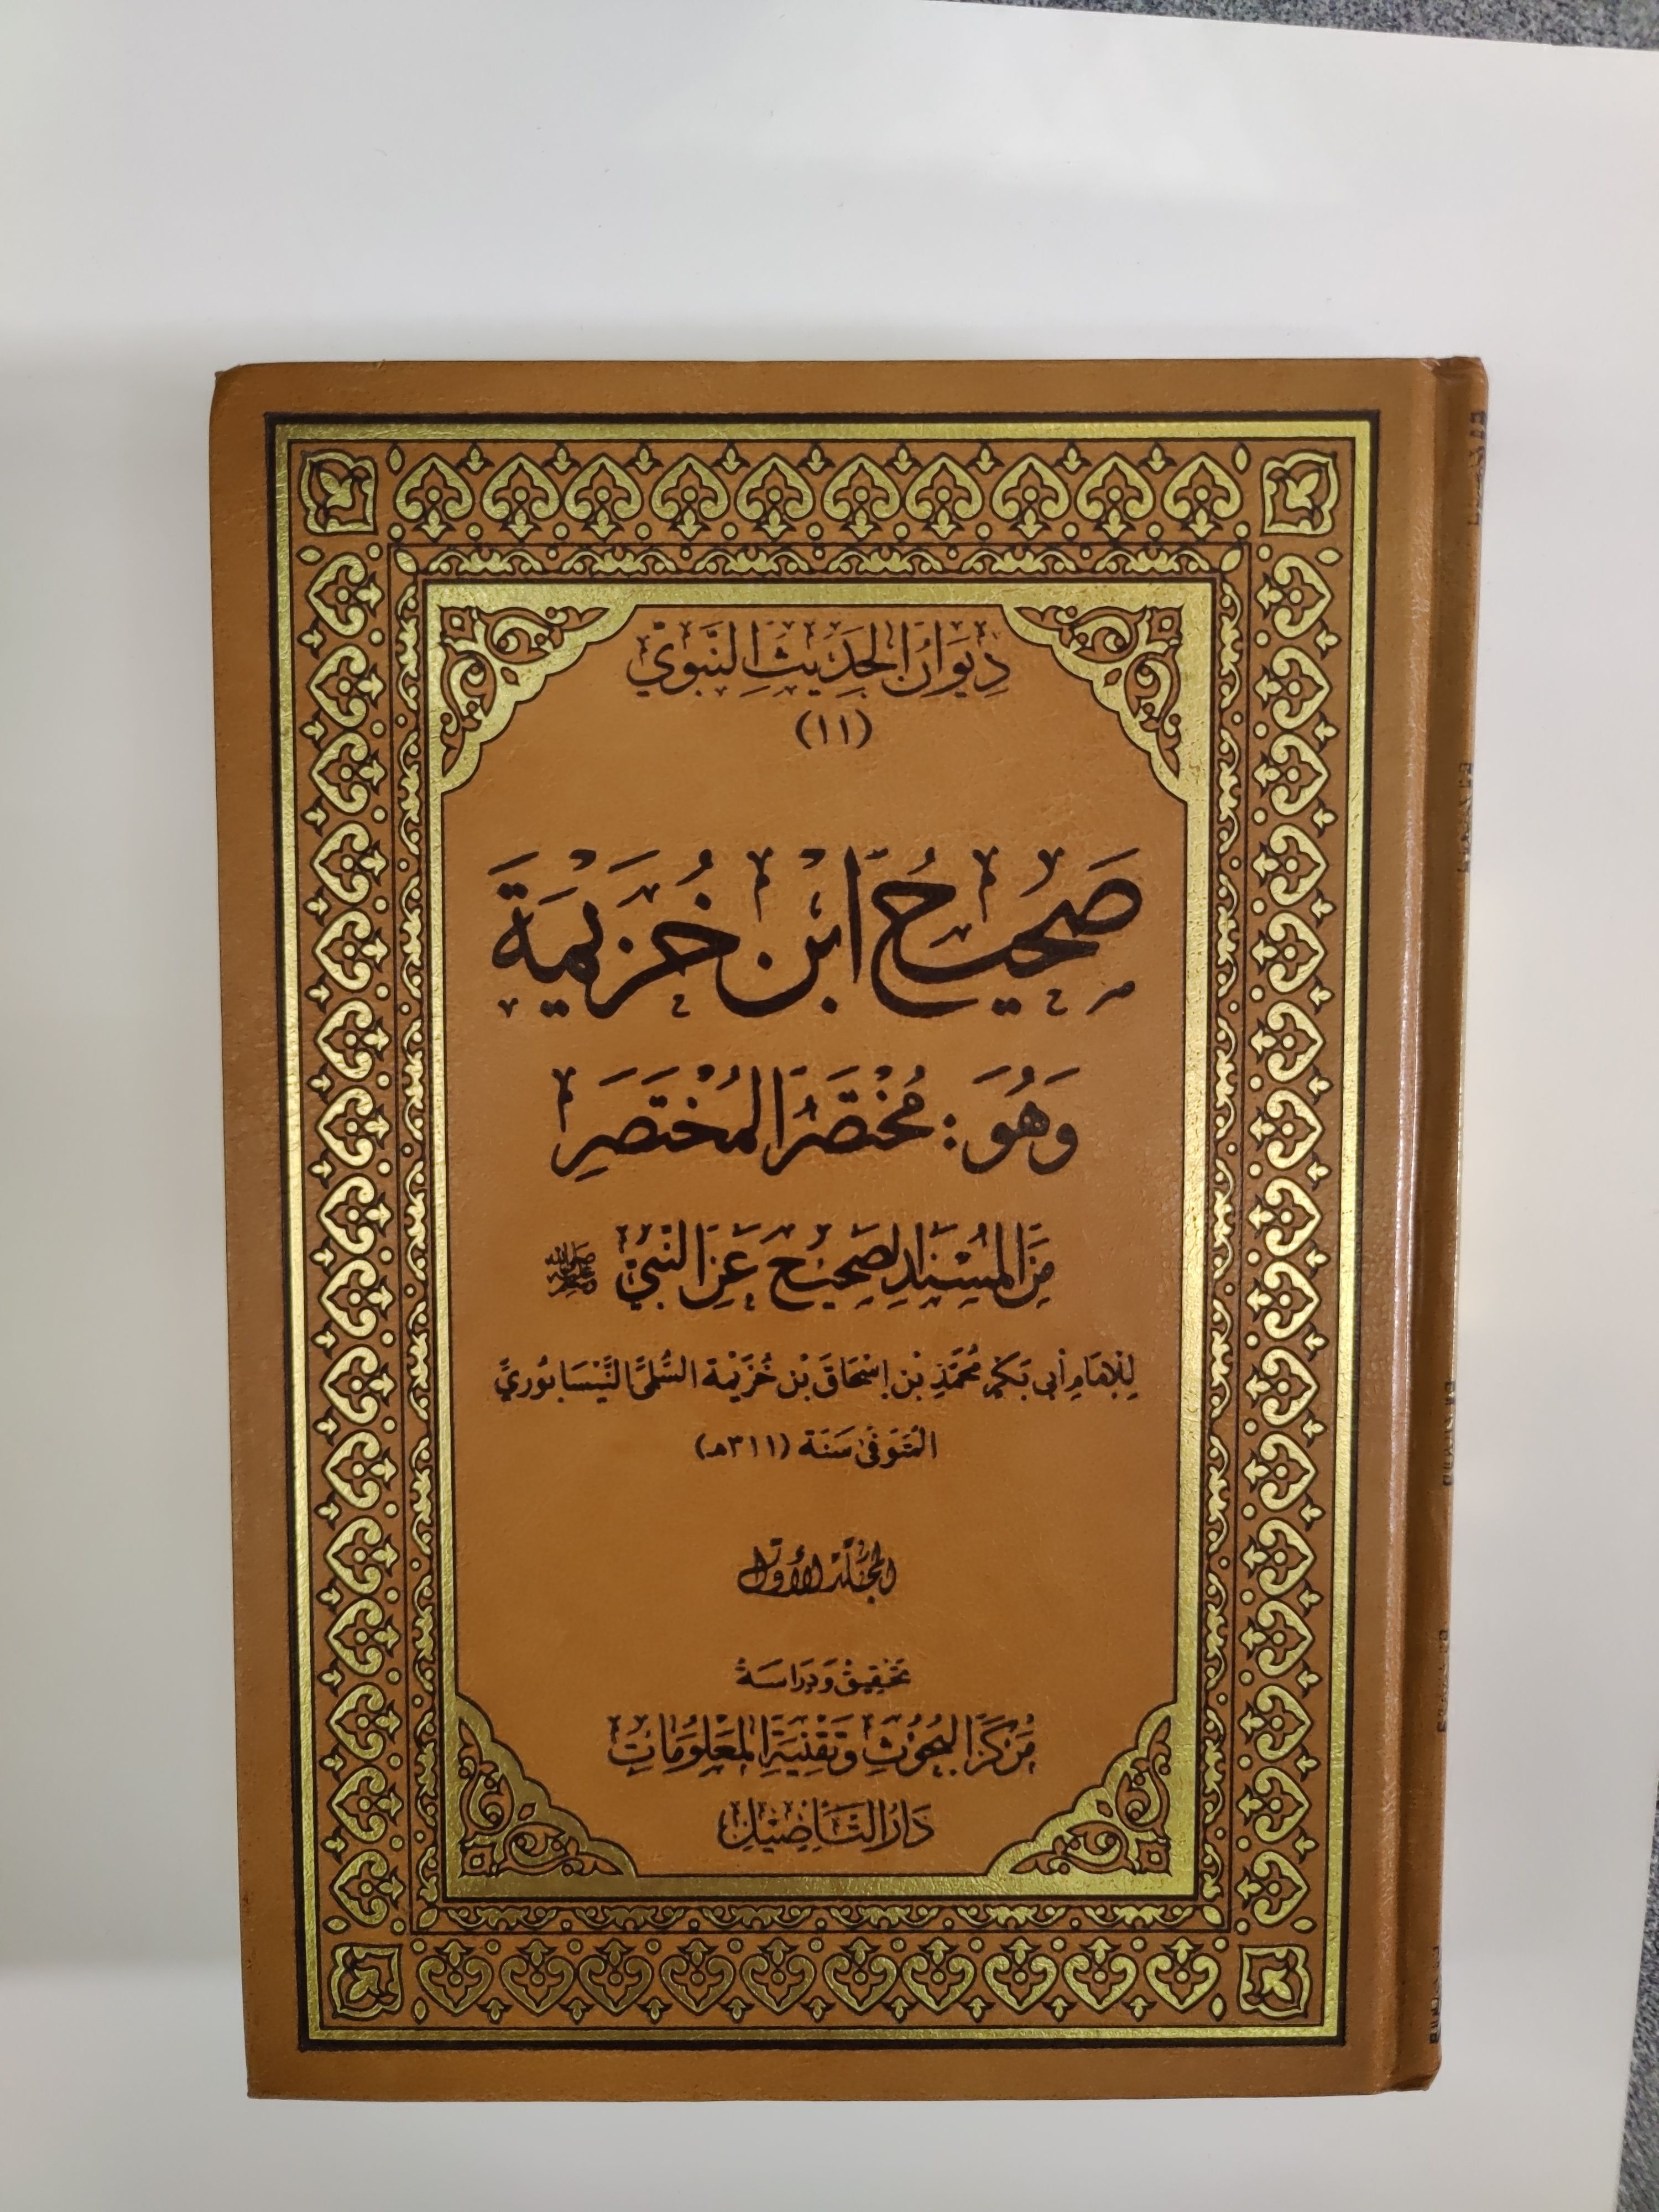 ديوان الحديث النبوي
(١١)
صَحِيحُ ابْنِ خُزَيْمَةَ
وَهُوَ: مُخْتَصَرُ المُخْتَصَرِ
مِنَ المُسْنَدِ الصَّحِيحِ عَنِ النَّبِيِّ ﷺ
لِلْإِمَامِ أَبِي بَكْرٍ مُحَمَّدِ بْنِ إِسْحَاقَ بْنِ خُزَيْمَةَ السُّلَمِيِّ النَّيْسَابُورِيِّ
المُتَوَفَّى سَنَة (٣١١هـ)
المجَلّد الأوّل
تَحْقِيقُ وَدِرَاسَةُ
مَرْكَزِ البُحُوثِ وَتِقْنِيَةِ المَعْلُومَاتِ
دَارُ التَّأْصِيلِ